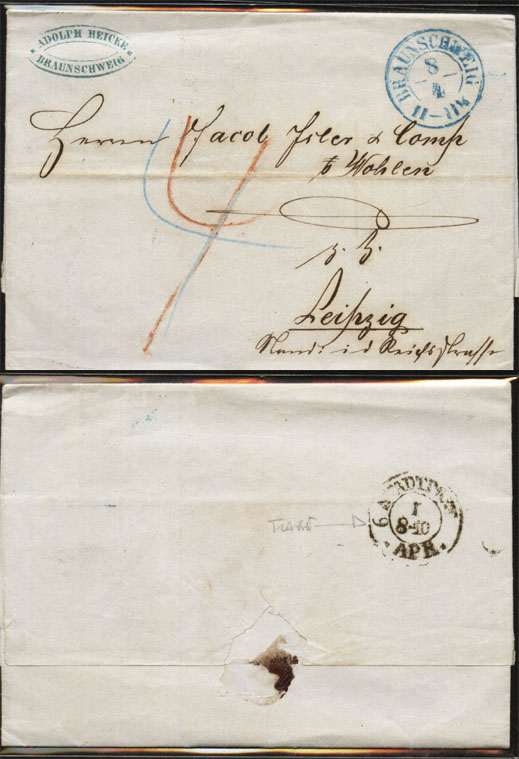 ADOLPH HEICKE
BRAUNSCHWEIG
BRAUNSCHWEIG
8
4
11-11½
Herrn Jacob Isler & Comp
Wohlen
z. Z.
Leipzig
Stand: i d Reichsstrasse
4
STADTPOST
I
8-10
APR.